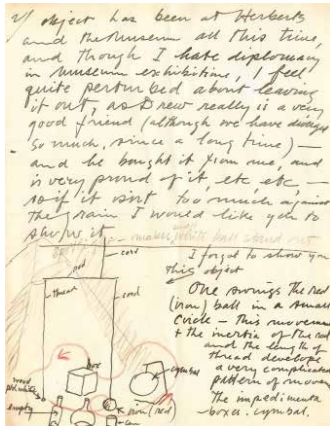 object has been at Herberts
and the Museum all this time,
and though I hate diplomacy
in museum exhibitions, I feel
quite perturbed about leaving
it out, as Drew really is a very
good friend (although we have diverged
so much, since a long time) —
and he bought it from me, and
is very proud of it, etc etc —
so if it isn't too much against
the grain I would like you to
show it
ball
out
cord
rod
thread
cord
I forgot to show you
this object
One swings the red
(iron) ball in a small
circle — This movement
+ the inertia of the rod
and the length of
thread develops
a very complicated
pattern of movement
The impedimenta
boxes, cymbal,
gong
box
cymbal
wood
white
empty
iron (red)
can